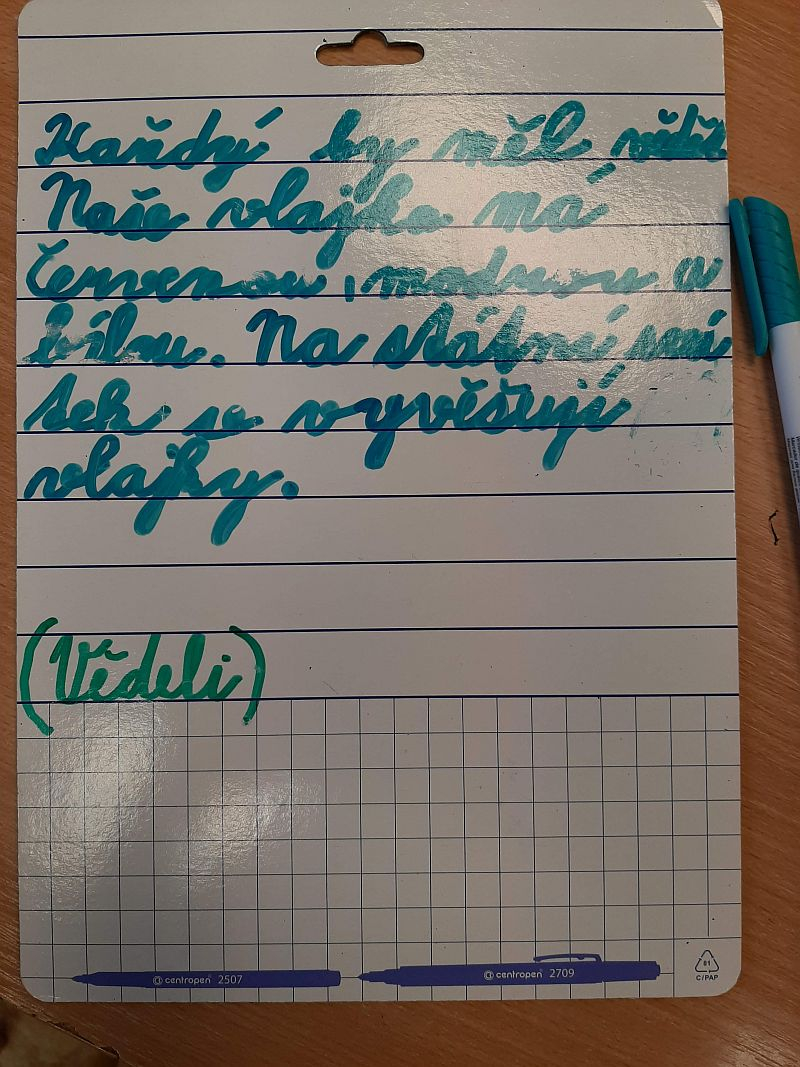 Každý by měl vědět
Naše vlajka má
červenou, modrou a
bílou. Na státní svá
tek se vyvěšují
vlajky.
(Věděli)
centropen 2507
centropen 2709
81
C/PAP